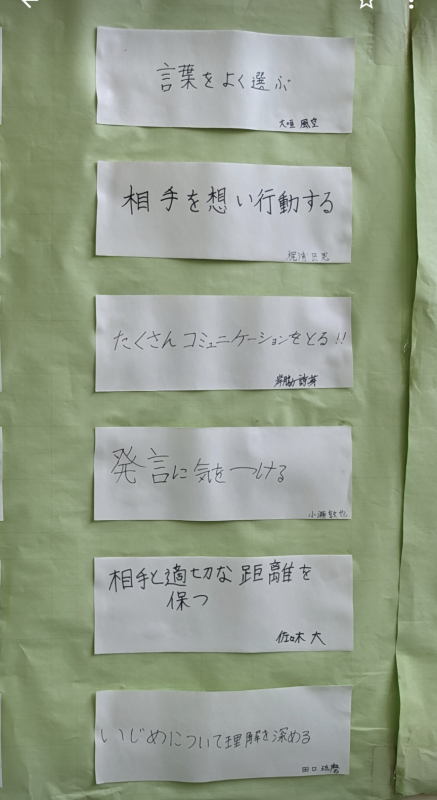 言葉をよく選ぶ
大垣 風空
相手を想い行動する
たくさんコミュニケーションをとる!!
発言に気をつける
相手と適切な距離を
保つ
佐々木 大
いじめについて理解を深める
田口 琉磨